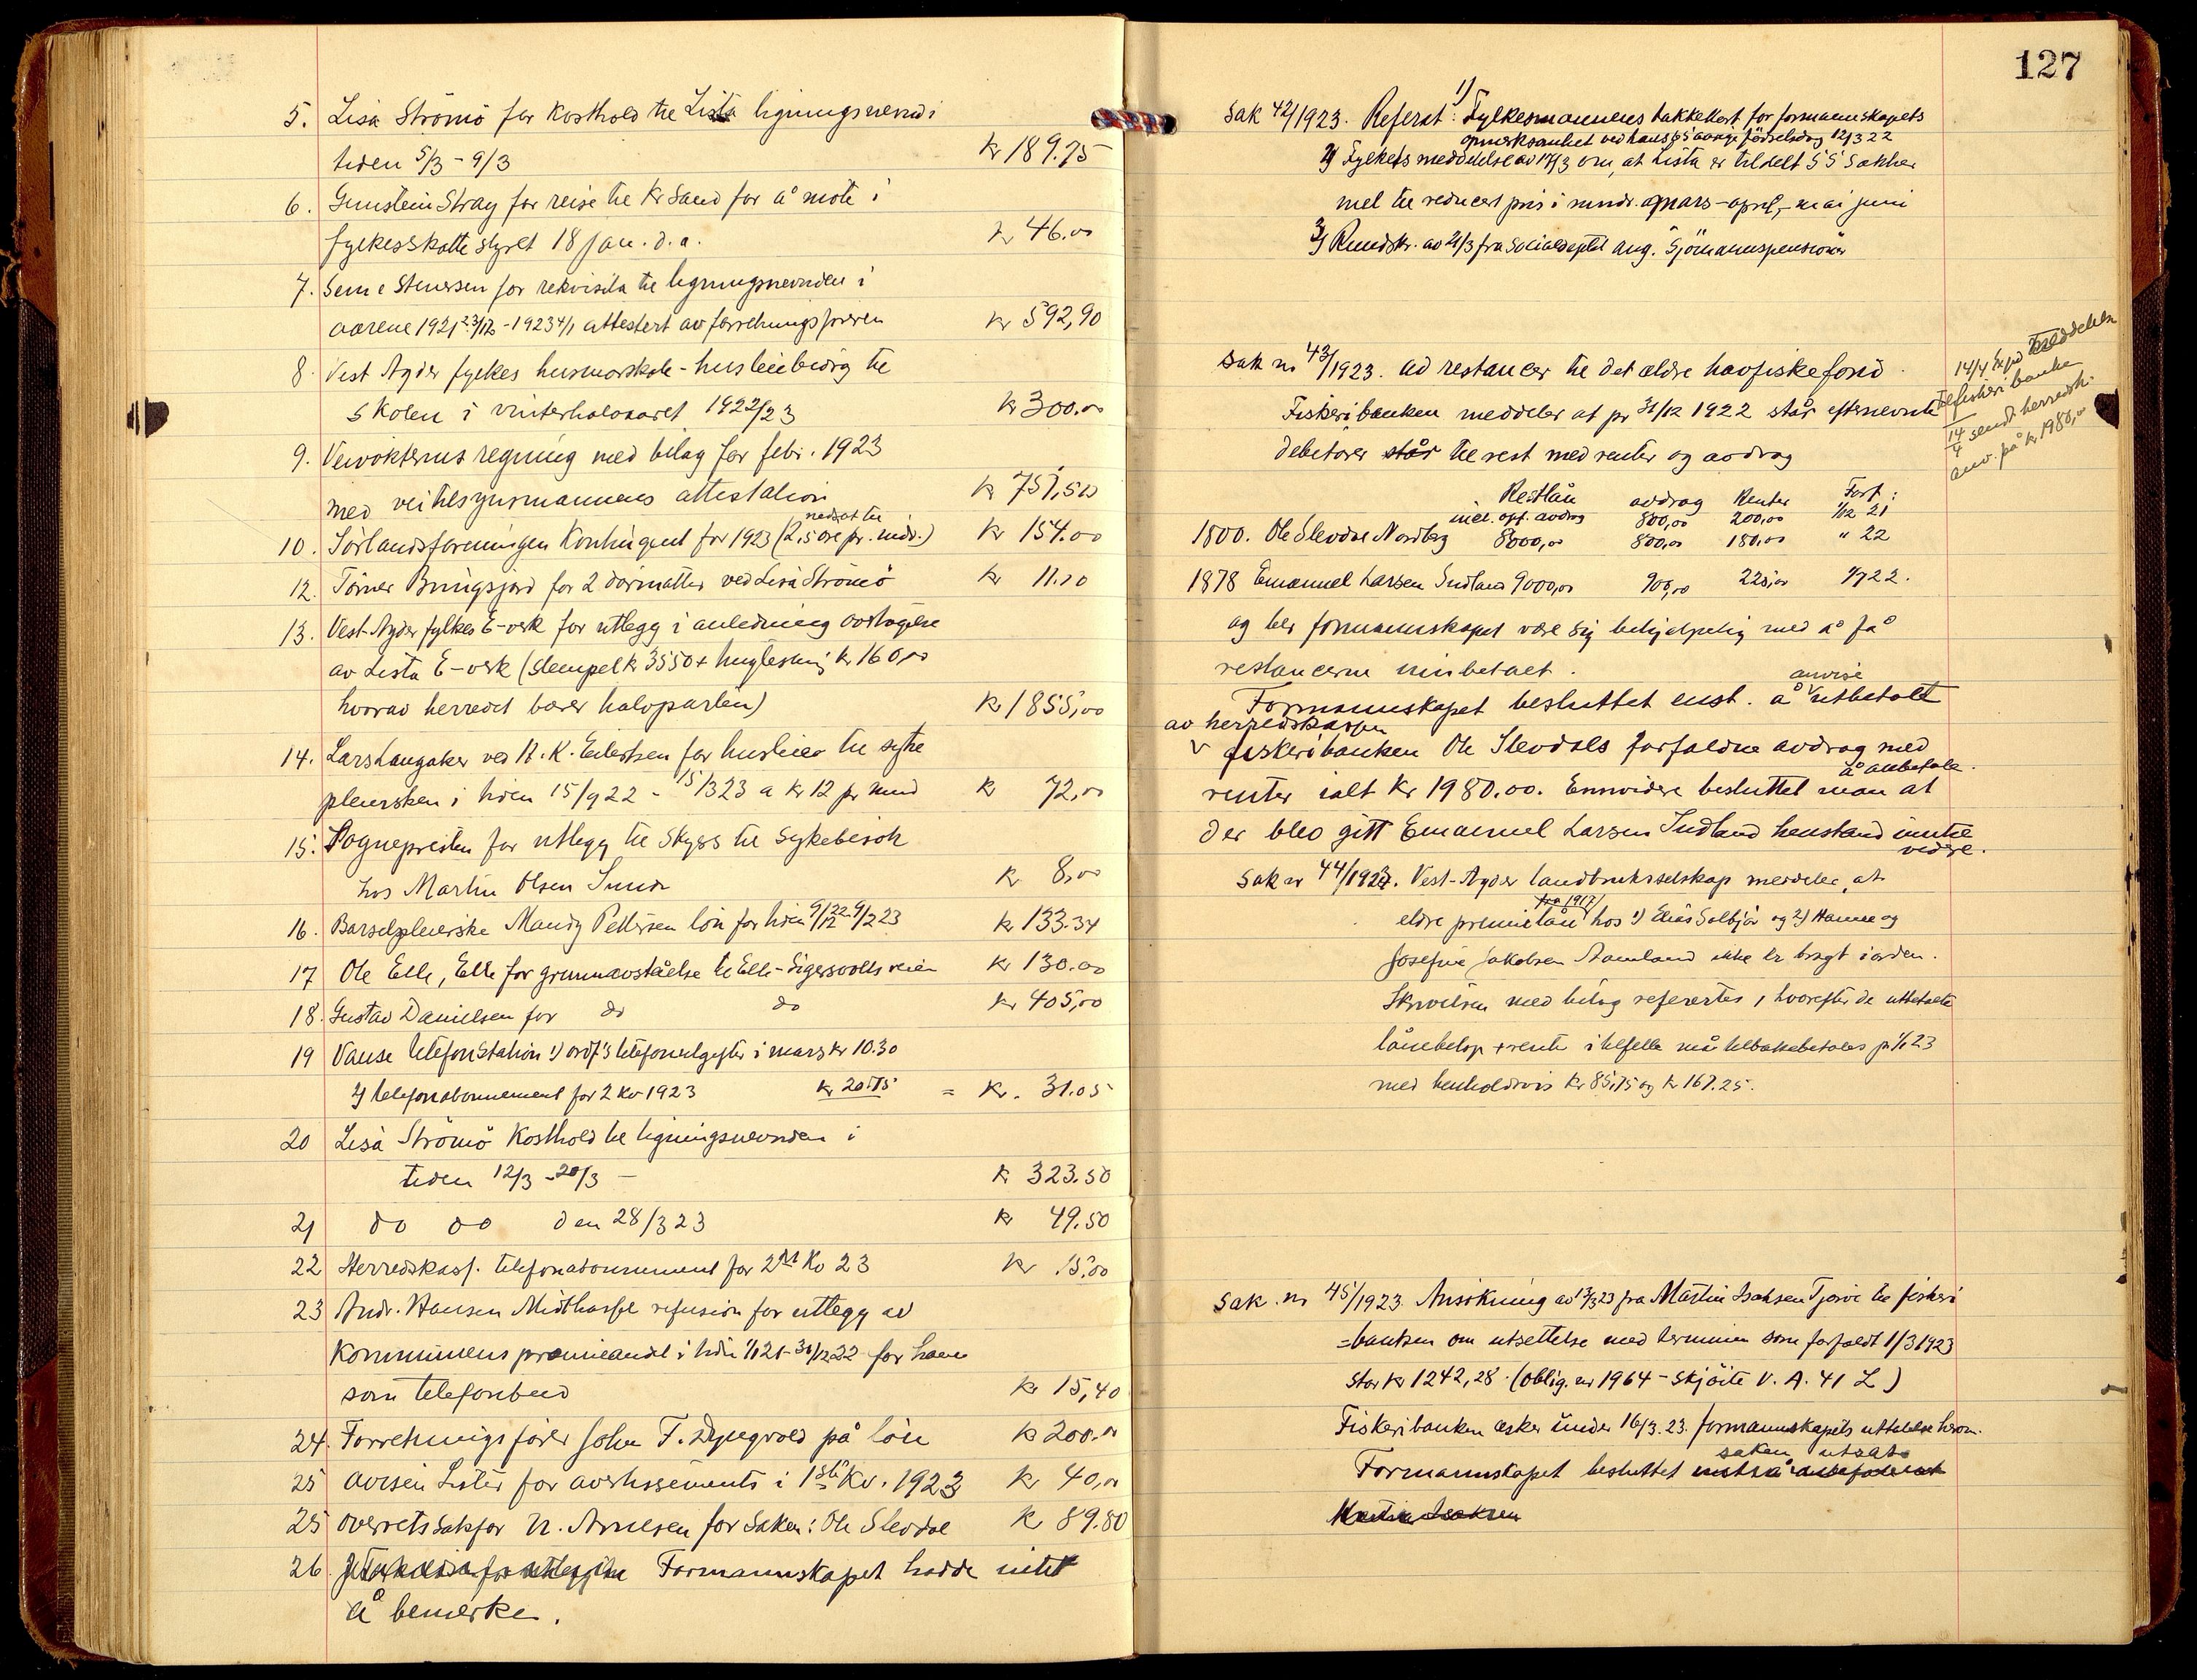 5. Lisa Strömö for kosthold til Lista ligningsnevnd i
tiden 5/3 - 9/3 kr 189.75
6. Gunstein Stray for reise til Kr Sand for å möte i
fylkesskattestyret 18 jan. d. a. kr 46.00
7. Sem & Stenersen for rekvisita til ligningsnevnden i
aarene 1921 23/12 - 1923 4/1 attestert av forretningsföreren kr 592,90
8. Vest Agder fylkes husmorskole - husleiebidrag til
skolen i vinterhalvaaret 1922/23 kr 300.00
9. Veivokternes regning med bilag for febr. 1923
med veitilsynsmannens attestation kr 751,50
nedsat til
10. Sörlandsforeningen Kontingent for 1923 (2,5 öre pr. indv.) kr 154.00
12. Törner Bringsjord for 2 dörmatter ved Lisa Strömö kr 11.20
13. Vest-Agder fylkes E-verk for utlegg i anledning avståelse
av Lista E-verk (stempel kr 3550 + tinglesning kr 160,00
hvorav herredet bærer halvparten) kr 1855,00
14. Lars Haugaker ved N. K. Eilertsen for husleie til syke
pleiersken i tiden 15/9 22 - 15/3 23 a kr 12 pr mnd kr 72,00
15. Sognepresten for utlegg til skyss til sykebesök
hos Martin Olsen Sunde kr 8,00
16. Barselpleierske Mandy Pettersen lön for tiden 9/12 22 - 9/2 23 kr 133.34
17 Ole Elle, Elle for grunnavståelse til Elle-Sigersvolls veien kr 130.00
18. Gustav Danielsen for do do kr 405,00
19 Vanse telefonstation 1) ordf's telefonutgifter i mars kr 10.30
2) telefonabonnement for 2 kv 1923 kr 20.75 = kr. 31.05
20 Lisa Strömö kosthold til ligningsnevnden i
tiden 12/3 - 20/3 - kr 323.50
21 do do den 28/3 23 kr 49.50
22 Herredskass. telefonabonnement for 2det kv 23 kr 15.00
23 Andr. Hansen Midthassel refusion for utlegg av
kommunens premieandel i tiden 1/1 21 - 31/12 22 for ham
som telefonbud kr 15,40
24. Forretningsförer John F. Dyngvold på lön kr 200.00
25 Avisen Lister for avertissements i 1ste kv. 1923 kr 40,00
25 Overretssakför N. Arnesen for saken: Ole Slevdal kr 89.80
26 Formannskapet hadde intet
å bemerke.
127
Sak 42/1923. Referat: 1) Fylkesmannens takkekort for formannskapets
opmerksomhet ved hans 65 aarige födselsdag 12/3 22
2) Fylkets meddelelse av 17/3 om, at Lista er tildelt 55 sækker
mel til reducert pris i mndr. mars - april, - mai juni
3) Rundskr. av 21/3 fra Socialdeptet ang. Sjömannspensioner
Sak nr 43/1923. ad restancer til det ældre havfiskefond
Fiskeribanken meddeler at pr 31/12 1922 står efternevnte
debitorer står til rest med renter og avdrag
Restlån avdrag Renter Forf:
incl. opf. avdrag 800,00 200,00 1/12 21
1800. Ole Slevdal Nordberg 8000,00 800,00 180,00 " 22
1878 Emanuel Larsen Indland 9000,00 900,00 225,00 1/7 22.
og ber formannskapet være sig behjelpelig med å få
restancerne innbetalt.
anvise
Formannskapet besluttet enst. å utbetalt
av herredskassen
fiskeribanken Ole Slevdals forfaldne avdrag med
å anbefale
renter ialt kr 1980.00. Ennvidere besluttet man at
der blev gitt Emanuel Larsen Indland henstand inntil
videre.
Sak nr 44/1923. Vest-Agder landbruksselskap meddeler, at
fra 1917
eldre premielån hos 1) Elias Solbjör og 2) Hanne og
Josefine Jakobsen Aamland ikke er bragt i orden.
Skrivelsen med bilag refereries, hvorefter de utbetalte
lånebelöp + rente i tilfelle må tilbakebetales pr 1/1 23
med henholdsvis kr 85,75 og kr 167.25.
Sak. nr 45/1923. Ansökning av 13/3 23 fra Martin Isaksen Tjörve til fiskeri
=banken om utsettelse med terminen som forfaldt 1/3 1923
stor kr 1242,28. (Oblig. nr 1964 - skjöite V. A. 41 L)
Fiskeribanken æsker under 16/3. 23. formannskapets uttalelse herom.
saken utsat
Formannskapet besluttet
Martin Isaksen
14/4 Exped meddelelse
til fiskeribanken
14/4 sendt herredsk.
anv. på kr 1980,00